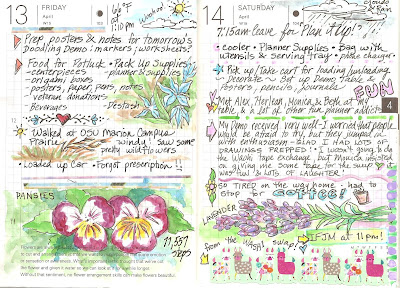 13 FRIDAY
April
66°F
at
1:10 pm
Window!
Prep posters & notes for tomorrow's
Doodling Demo: markers; worksheets?
Food for Potluck • Pack Up Supplies
- centerpieces
- planner & supplies
- origami boxes
- posters, paper, pens, notes
- veteran donations
Beverages
- Destash
Walked at OSU Marion Campus
Prairie
windy! saw some
pretty wildflowers
• Loaded up car • Forgot prescription!!
PANSIES
11,557
steps
14 SATURDAY
April
clouds &
rain
7:15am leave for Plan it Up!
• cooler • Planner Supplies • Bag with
utensils & serving tray • phone charger
Pick up/Take cart for loading/unloading
• Decorate • Set up Demo table
Posters, pencils, journals
Met Alex, Morlean, Monica & Beth at my
table & a lot of other fun planner addicts
FUN
4
My Demo received very well - I worried that people
would be afraid to try, but they jumped in
with enthusiasm - GLAD I HAD LOTS OF
DRAWINGS PREPPED! • I wasn't going to do
the Washi Tape exchange, but Monica insisted
on giving me some tape for the swap
was fun & LOTS OF LAUGHTER
SO TIRED on the way home - had to
stop for COFFEE!
LAVENDER
IFJM at 11pm!
from the Washi swap!